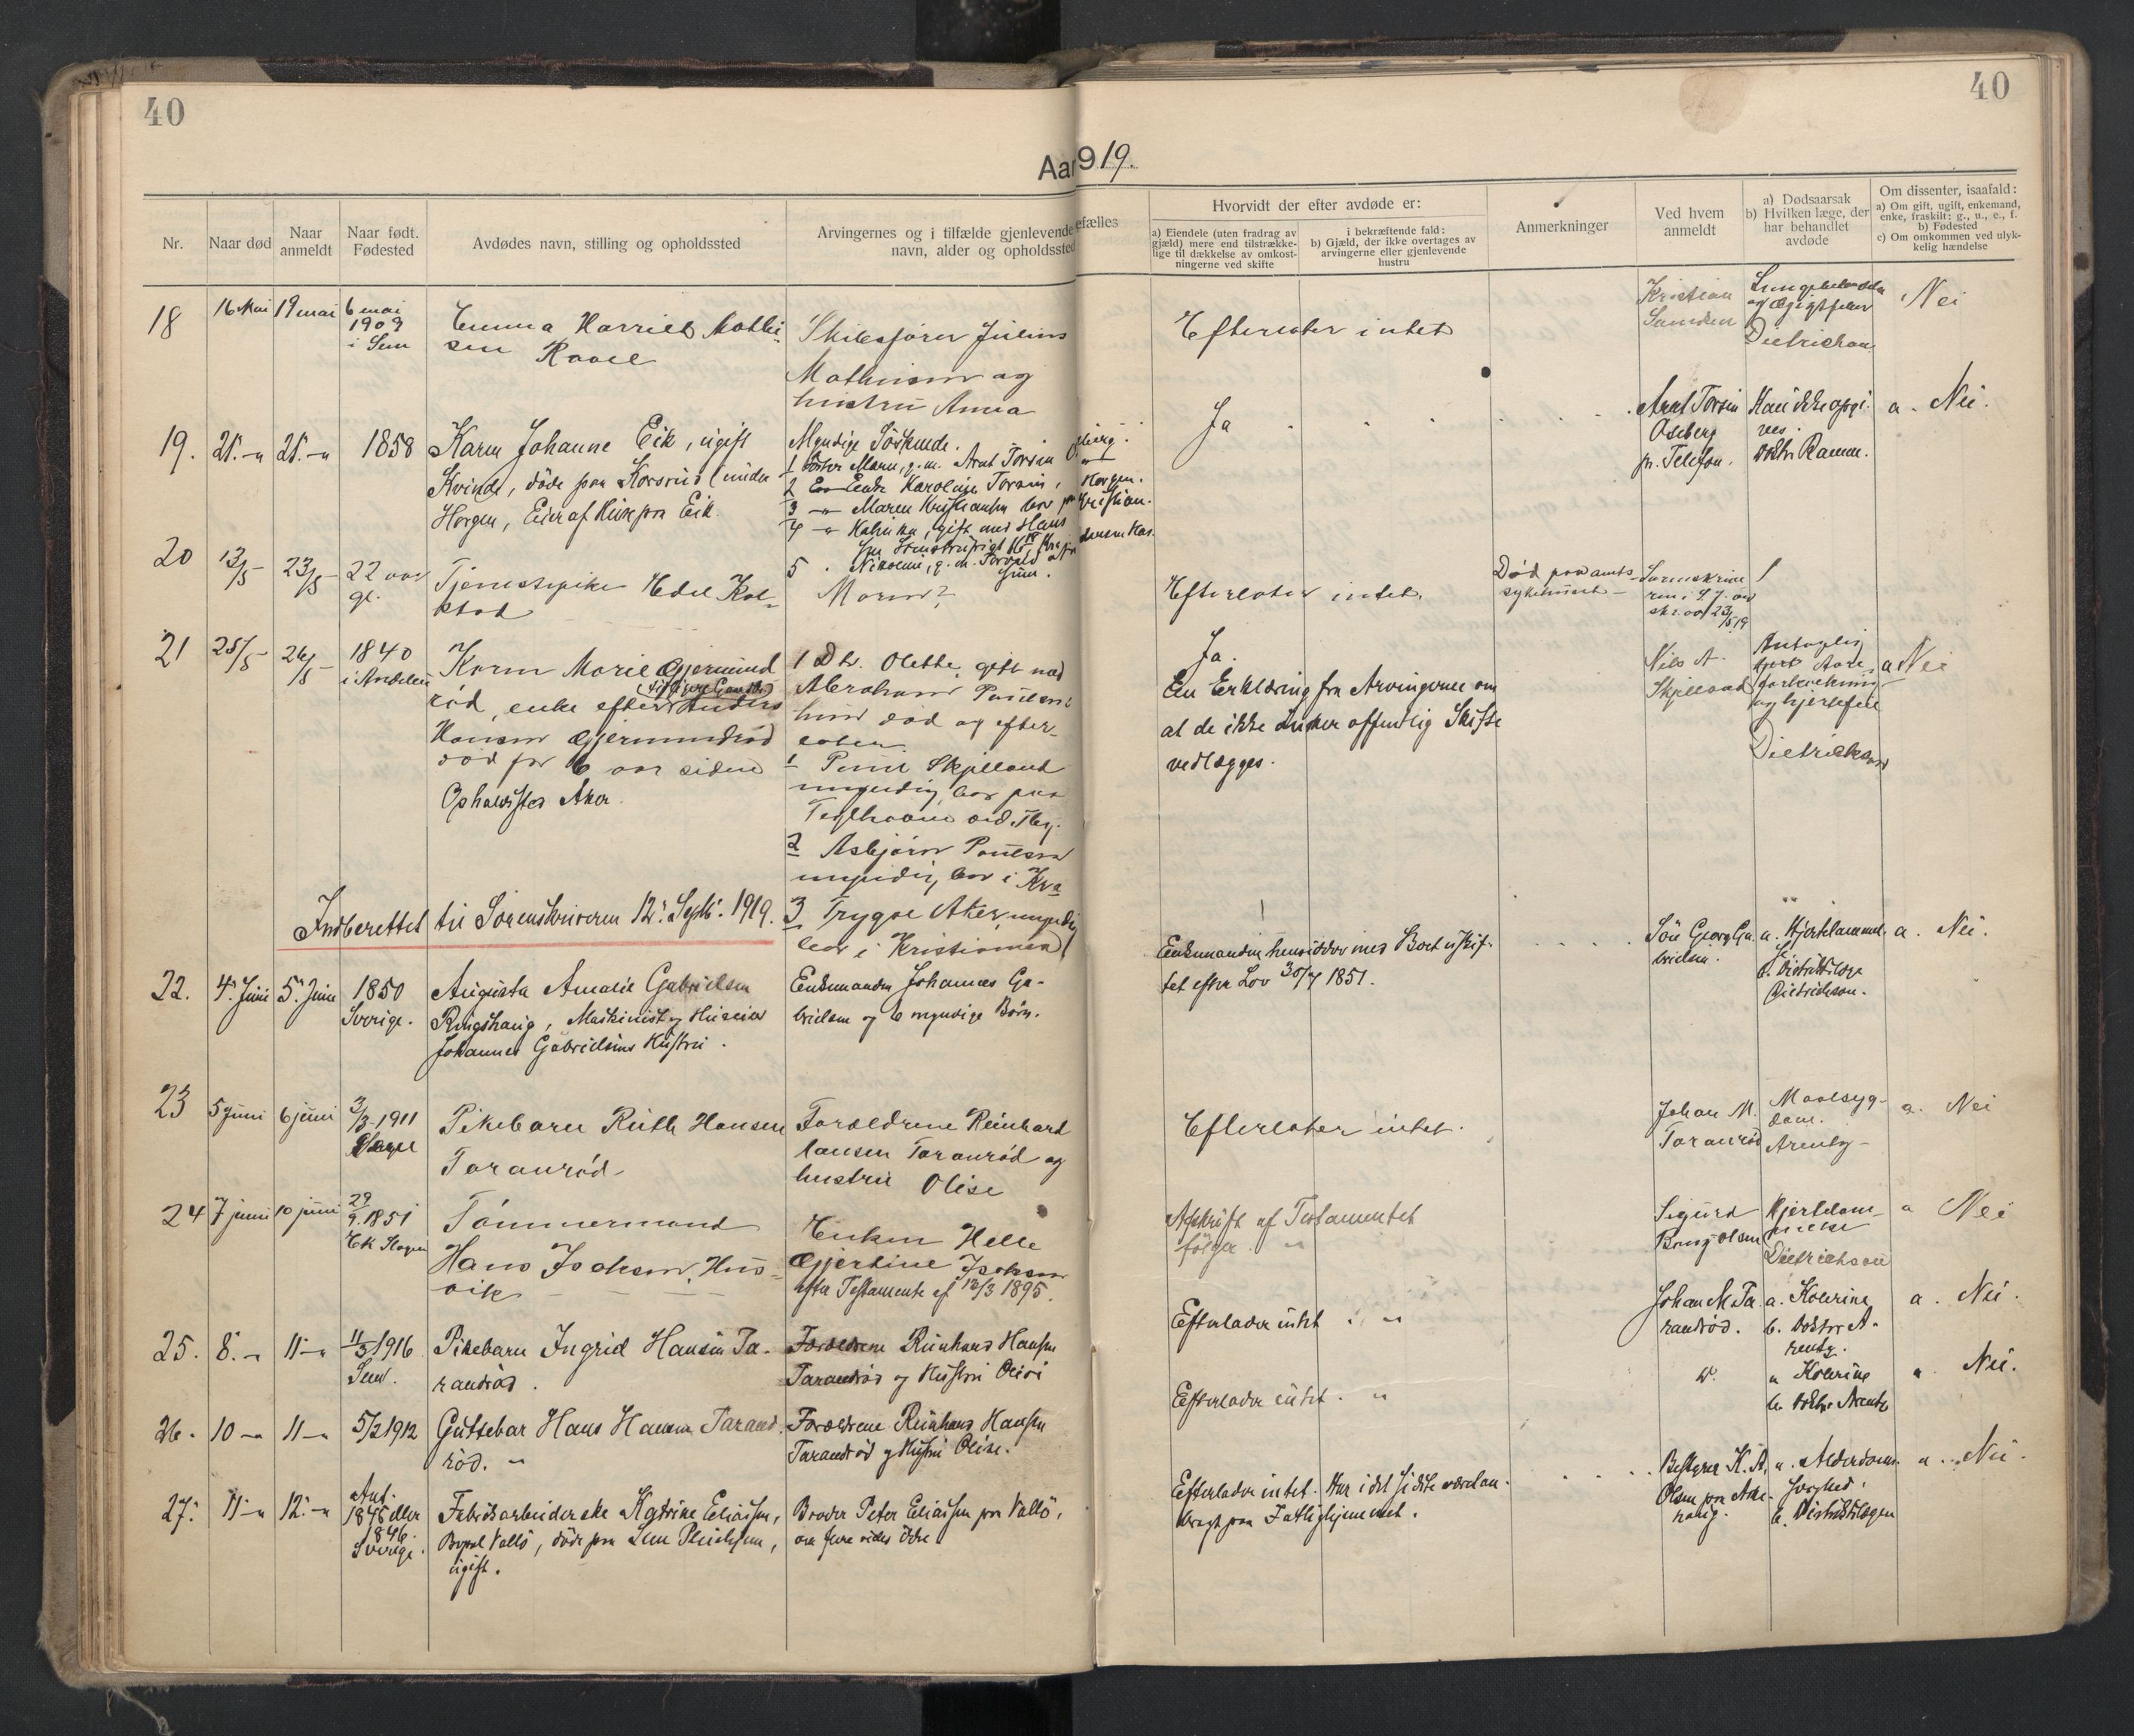 40
40
Aar 1919.
Nr.
Naar død
Naar anmeldt
Naar født. Fødested
Avdødes navn, stilling og opholdssted
Arvingernes og i tilfælde gjenlevende
navn, alder og opholdssted
efælles
Hvorvidt der efter avdøde er:
a) Eiendele (uten fradrag av
gjæld) mere end tilstrække-
lige til dækkelse av omkost-
ningerne ved skifte
i bekræftende fald:
b) Gjæld, der ikke overtages av
arvingerne eller gjenlevende
hustru
Anmerkninger
Ved hvem
anmeldt
a) Dødsaarsak
b) Hvilken læge, der
har behandlet
avdøde
Om dissenter, isaafald:
a) Om gift, ugift, enkemand,
enke, fraskilt: g., u., e., f.
b) Fødested
c) Om omkommen ved ulyk-
kelig hændelse
18
16 Mai
19 mai
6 mai
1909
i Sem
Emma Harriet Mathi-
sen Raael
Skibsfører Julius
Mathisen og
hustru Anna
Efterlater intet
Kristian
Dietrichson
Nei
19.
21.-"
21.-"
1858
Karen Johanne Eik, ugift
Kvinde, døde paa Korsrud under
Horgen, Eier af Huse paa Eik.
Myndige Søskende.
1 Søster Maren, g. m. Arnt Torsen Oseberg.
2 Enke Karoline Torsen, Horgen.
3 -"- Maren Kristiansen bor paa Kristian.
4 -"- Kathinka, gift med Hans
5 . Nikoline, g. m. Torvald
Sem.
Ja
Arnt Torsen
Oseberg
pr. Telefon.
Kan ikke opgi-
ves.
Doktor Ramm.
a. Nei.
20
13/5-
23/5-
22 aar
gl.
Tjenestepike Edel Kol-
stad
Moren?
Efterlater intet.
Død paa amts-
sykehuset -
Sorenskrive
ren i
skr. av 23/5 19
21
25/5-
26/5-
1840
i Andebu
Karen Marie Gjermund
rød, enke efter Anders
Hansen Gjermundrød
død for 6 aar siden
Opholdssted Aker.
1 Dtr. Olette, gift med
Abraham Paulsen
hun død og efter-
later
1 Paul Skjelland
myndig, bor paa
ved Tbg.
2 Asbjørn Paulsen
myndig, bor i Kra
3 Trygve Aker, myndig
bor i Kristiania
Ja.
En Erklæring fra Arvingerne om
at de ikke ønsker offentlig Skifte
vedlægges.
Nils A.
Skjelland
Antagelig
Aare
forkalkning
og hjertefeil
Dietrichson
a Nei
Indberettet til Sorenskriveren 12. Septb. 1919.
22.
4. Juni
5. Juni
1850
Sverige.
Augusta Amalie Gabrielsen
Ringshaug, Maskinist og Huseier
Johannes Gabrielsens Hustru.
Enkemanden Johannes Ga-
brielsen og 6 myndige Børn.
Enkemanden hensidder med Boet uskif-
tet efter Lov 30/7 1851.
Søn Georg Ga-
brielsen.
a. Hjertelammel-
se
b. Distriktslæge
Dietrichson.
a. Nei.
23
5 juni
6 juni
3/3-1911
Slagen
Pikebarn Ruth Hansen
Taranrød
Forældrene Reinhard
Hansen Taranrød og
hustru Olise
Efterlater intet.
Johan M.
Taranrød
Arentz-
a. Nei
24
7 juni
10 juni
29/9.1851
Ek Slagen
Tømmermand
Hans Jacobsen, Hus-
vik
Enken Helle
Gjertine Jacobsen
efter Testamente af 12/3 1895.
Afskrift af Testamentet
følger. "
Sigurd
Olsen
Hjertelam-
melse
Dietrichson
a Nei
25.
8.-"
11-"
11/3 1916
Sem.
Pikebarn Ingrid Hansen Ta-
randrød.
Forældrene Reinhard Hansen
Tarandrød og Hustru Olise
Efterlader intet. "
Johan M Ta-
randrød.
a. Kolerine
b. Doktor A-
rentz.
a. Nei.
26.
10-"
11-"
5/2 1912
Guttebarn Hans Hansen Tarand-
rød. "
Forældrene Reinhard Hansen
Tarandrød og Hustru Olise.
Efterlader intet. "
a Kolerine
b. Doktor Arentz
" Nei.
27.
11-"
12.-"
Ant.
1845 eller
1846.
Sverige.
Fabrikarbeiderske Katrine Eliassen,
Bopæl Vallø, døde paa Sem Pleiehjem,
ugift.
Broder Peter Eliassen paa Vallø,
om flere vides ikke
Efterlader intet. Har i det sidste været an-
bragt paa Fattighjemmet.
Bestyrer K. A.
Olsen paa Ake-
haug.
a. Alderdoms-
svaghed.
b. Distriktslægen
a. Nei.